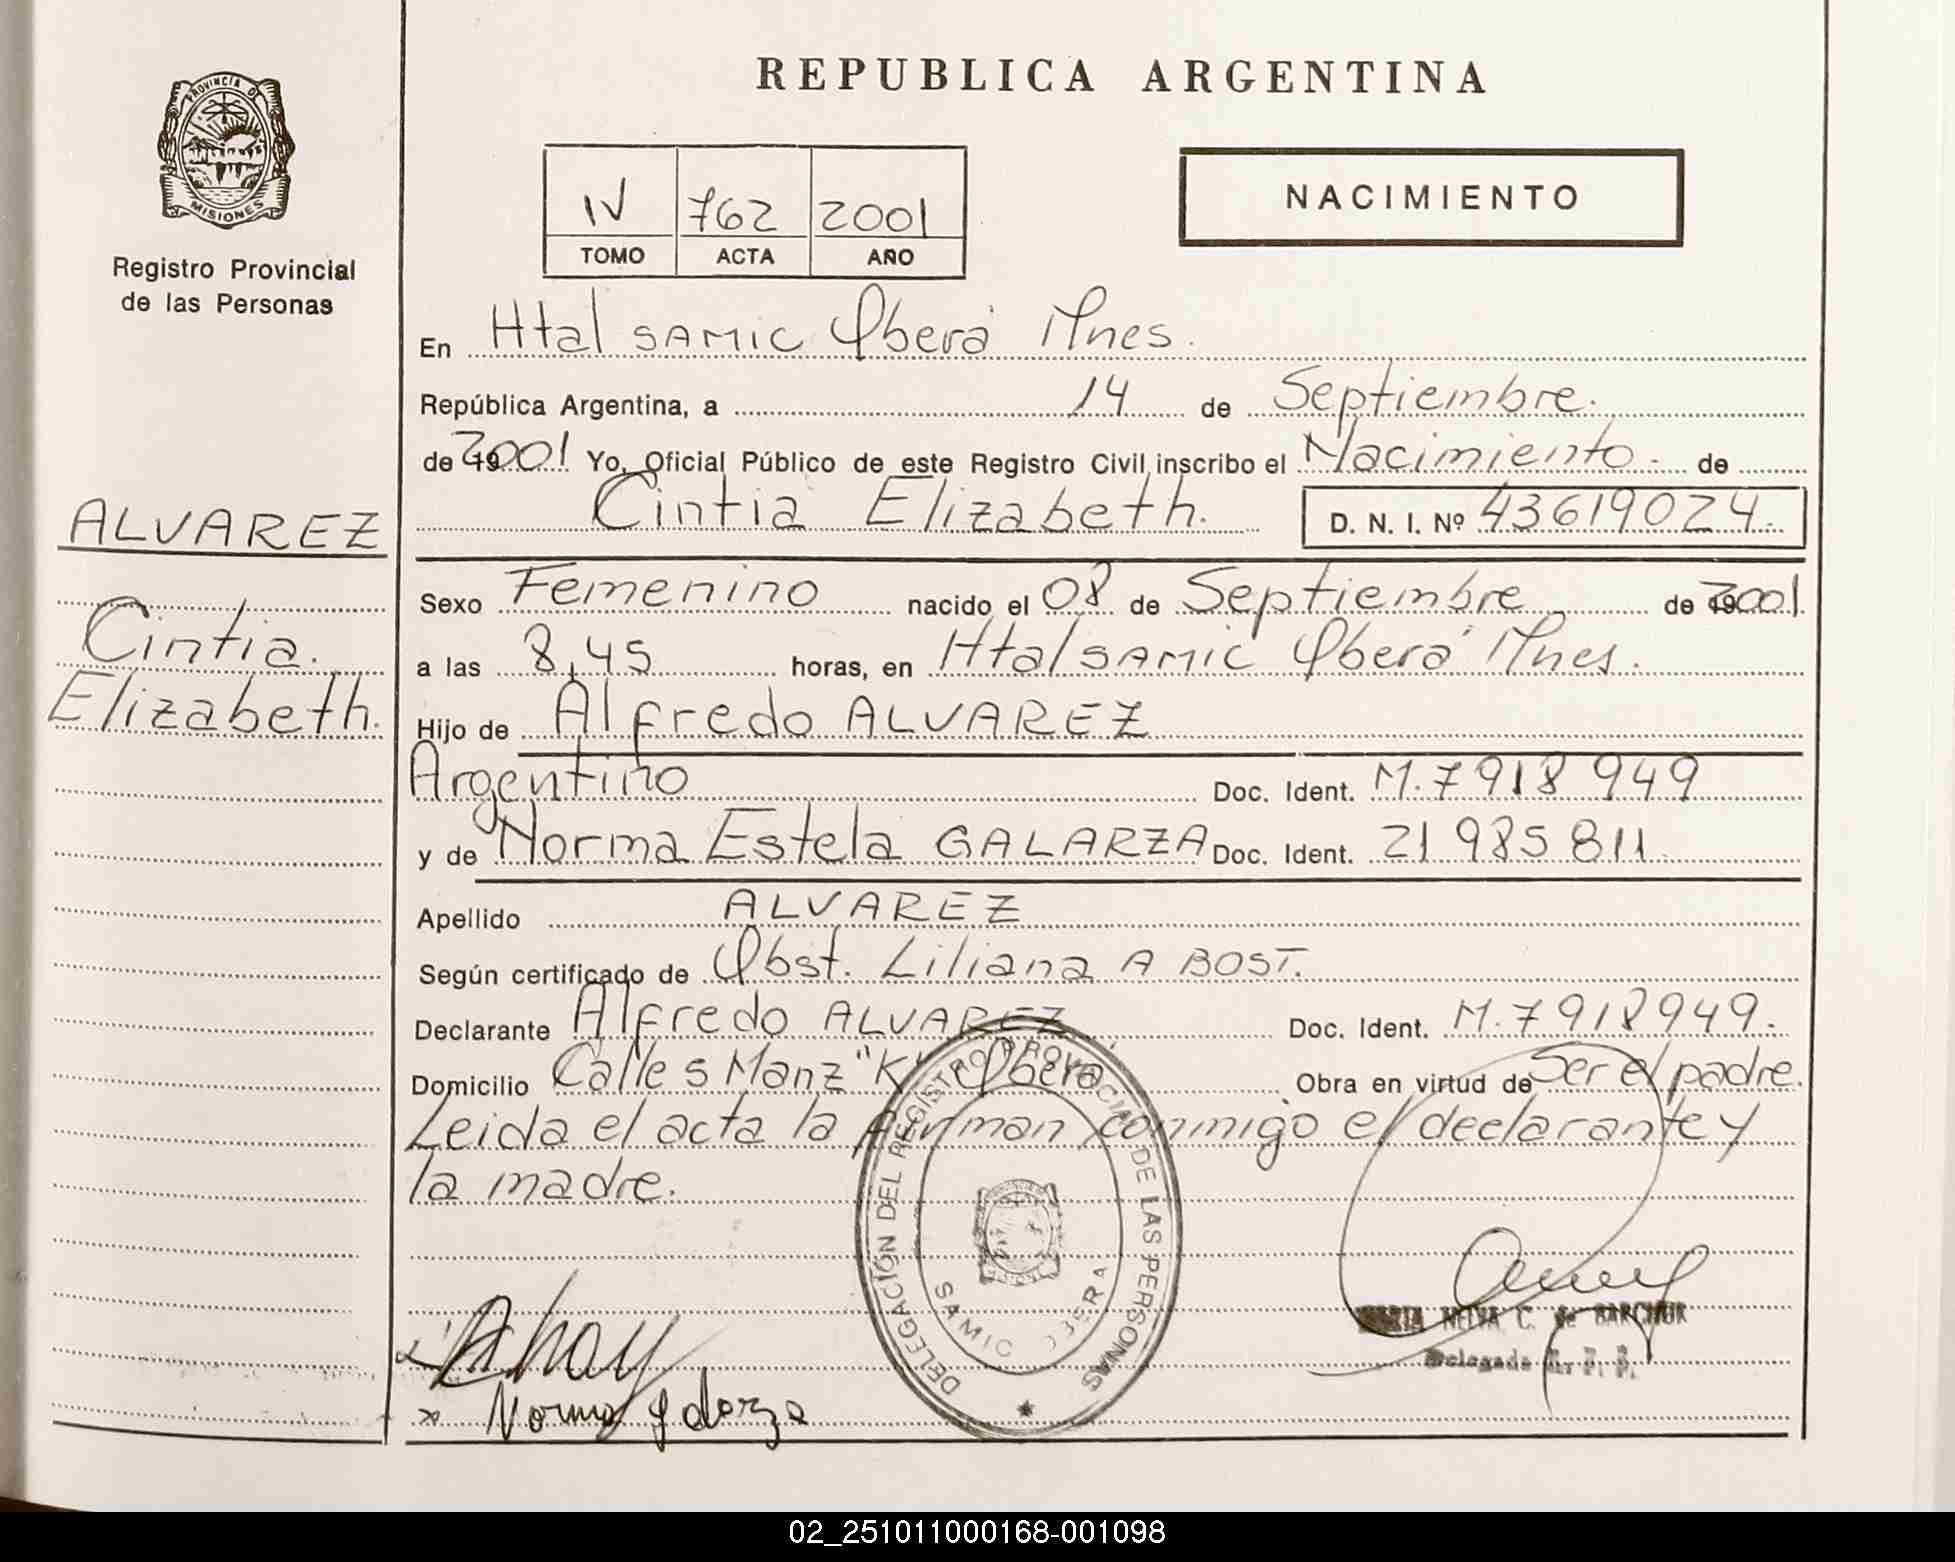 REPUBLICA ARGENTINA
PROVINCIA DE
MISIONES
Registro Provincial
de las Personas
IV 762 2001
TOMO ACTA AÑO
NACIMIENTO
ALVAREZ
Cintia.
Elizabeth.
En Htal SAMIC Oberá Mnes.
República Argentina, a 14 de Septiembre.
de 2001 Yo, Oficial Público de este Registro Civil inscribo el Nacimiento. de
Cintia Elizabeth. D. N. I. Nº 43619024.
Sexo Femenino nacido el 08 de Septiembre de 2001
a las 8,45 horas, en Htal SAMIC Oberá Mnes.
Hijo de Alfredo ALVAREZ
Argentino Doc. Ident. M. 7918949
y de Norma Estela GALARZA Doc. Ident. 21985811
Apellido ALVAREZ
Según certificado de Obst. Liliana A BOST.
Declarante Alfredo ALVAREZ Doc. Ident. M. 7918949.
Domicilio Calle S Manz "K" Oberá Obra en virtud de Ser el padre.
Leida el acta la firman conmigo el declarante y
la madre.
DELEGACIÓN DEL REGISTRO PROVINCIAL DE LAS PERSONAS
SAMIC OBERA
MARIA NELVA C. de BARCHUK
Delegada R. P. P.
x Norma Galarza
02_251011000168-001098